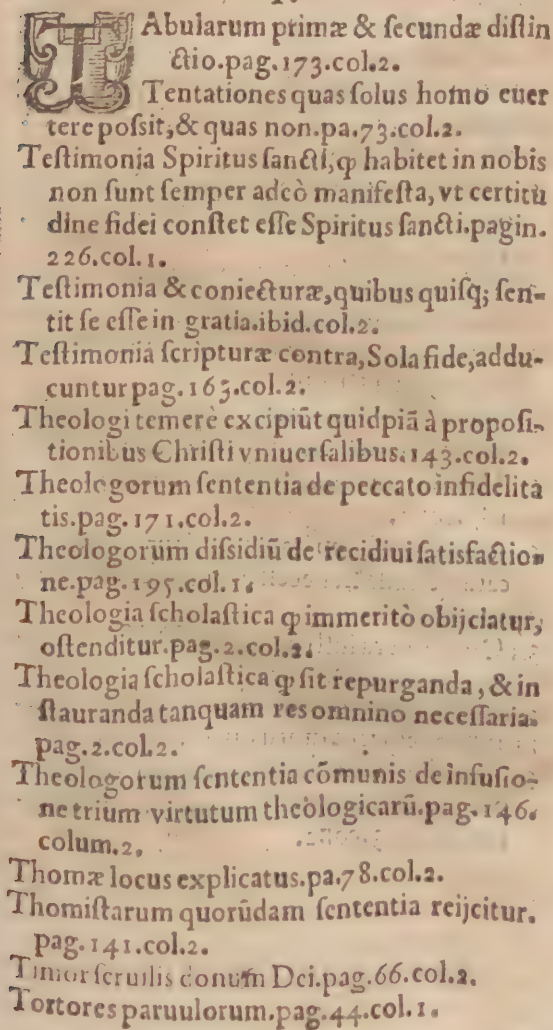 TAbularum primæ & ſecundæ diſtin
ctio.pag.173.col.2.
Tentationes quas ſolus homo euer
tere poſsit,& quas non.pa.73.col.2.
Teſtimonia Spiritus ſancti,ꝙ habitet in nobis
non ſunt ſemper adeò manifeſta, vt certitu
dine fidei conſtet eſſe Spiritus ſancti.pagin.
226.col.1.
Teſtimonia & coniecturæ,quibus quiſq; ſen-
tit ſe eſſe in gratia.ibid.col.2.
Teſtimonia ſcripturæ contra, Sola fide, addu-
cuntur pag.163.col.2.
Theologi temerè excipiūt quidpiā à propoſi-
tionibus Chriſti vniuerſalibus.143.col.2.
Theologorum ſententia de peccato infidelita
tis.pag.171.col.2.
Theologorum diſsidiū de recidiui ſatisfactio-
ne.pag.195.col.1.
Theologia ſcholaſtica ꝙ immeritò obijciatur,
oſtenditur.pag.2.col.2.
Theologia ſcholaſtica ꝙ ſit repurganda, & in
ſtauranda tanquam res omnino neceſſaria.
pag.2.col.2.
Theologorum ſententia cōmunis de infuſio-
ne trium virtutum theologicarū.pag.146.
colum.2.
Thomæ locus explicatus.pa.78.col.2.
Thomiſtarum quorūdam ſententia reijcitur.
pag.141.col.2.
Timor ſeruilis donum Dei.pag.66.col.2.
Tortores paruulorum.pag.44.col.1.